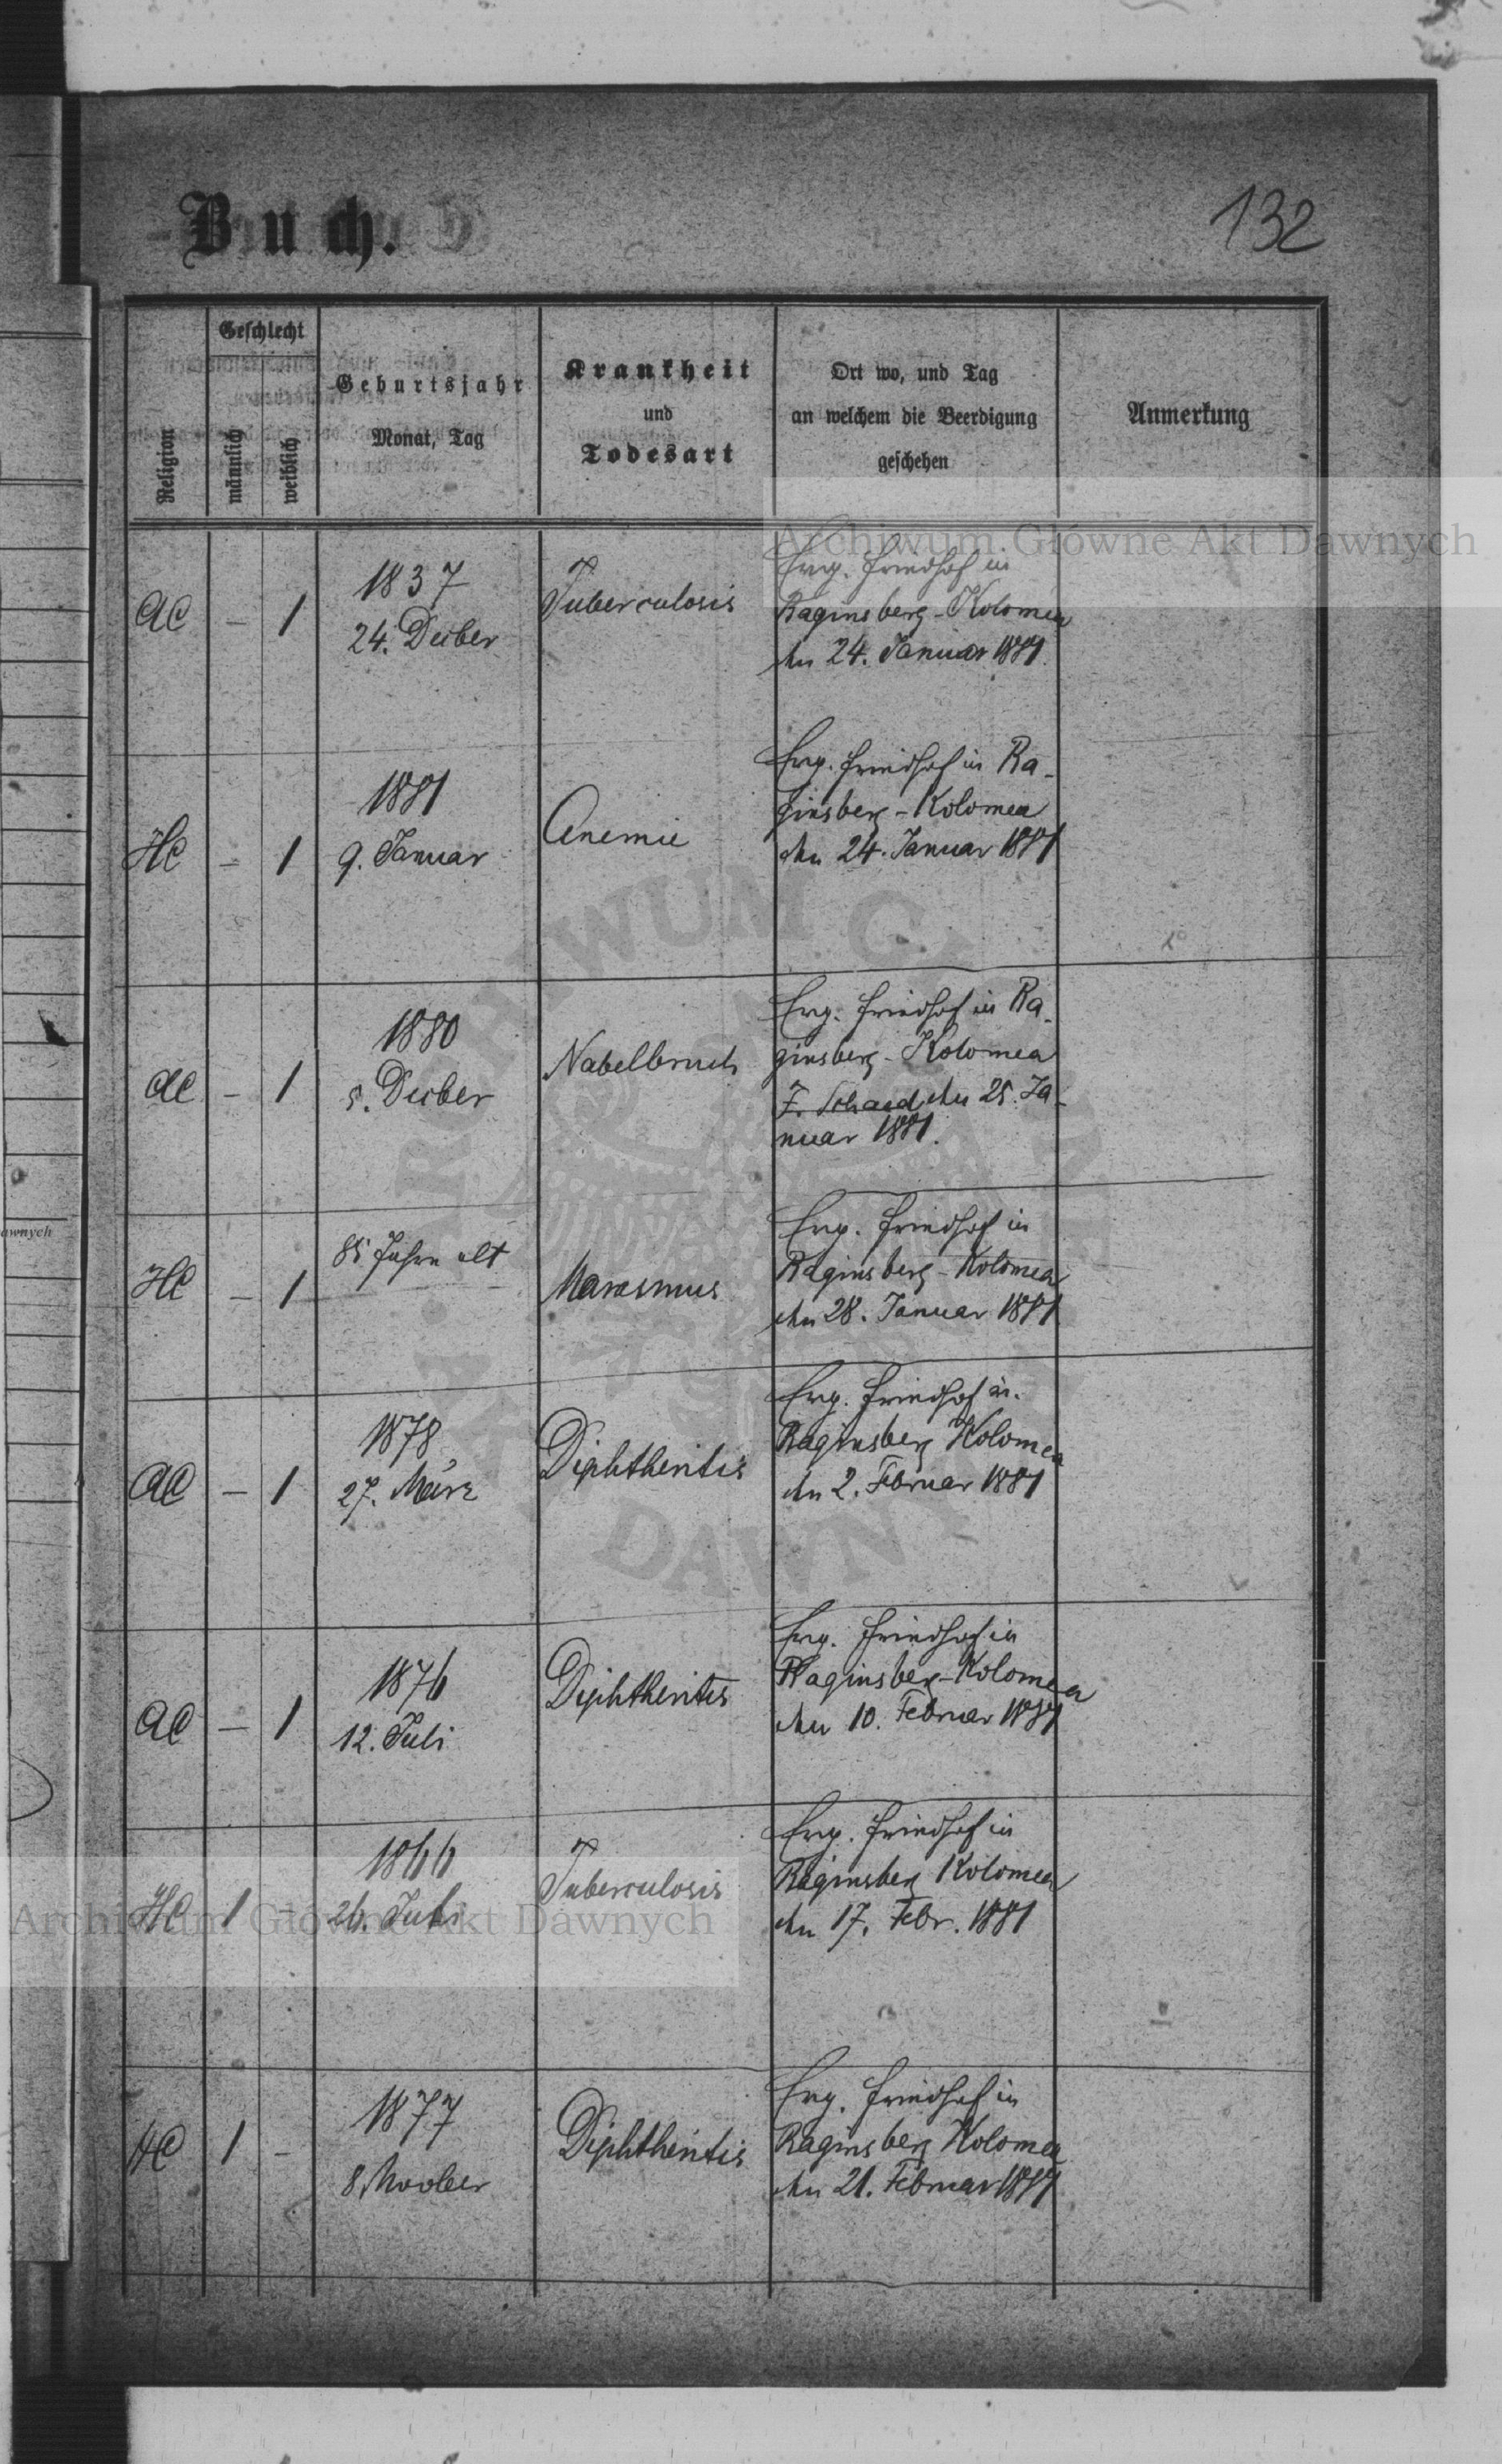 Buch.
132
Religion
Geschlecht
männlich
weiblich
Geburtsjahr
Monat, Tag
Krankheit
und
Todesart
Ort wo, und Tag
an welchem die Beerdigung
geschehen
Anmerkung
AC - 1
1837
24. Dezber
Tuberculosis
Evg. Friedhof in
Baginsberg-Kolomea
den 24. Januar 1881.
HC - 1
1881
9. Januar
Anemie
Evg. Friedhof in Ba-
ginsberg-Kolomea
den 24. Januar 1881
AC - 1
1880
5. Dezber
Nabelbruch
Evg. Friedhof in Ba-
ginsberg-Kolomea
den 25. Ja-
nuar 1881.
HC - 1
85 Jahre alt
Marasmus
Evg. Friedhof in
Baginsberg-Kolomea
den 28. Januar 1881
AC - 1
1878
27. März
Diphtheritis
Evg. Friedhof in
Baginsberg Kolomea
den 2. Februar 1881
AC - 1
1876
12. Juli
Diphtheritis
Evg. Friedhof in
Baginsberg-Kolomea
den 10. Februar 1881
HC 1 -
1866
26. Juli
Tuberculosis
Evg. Friedhof in
Baginsberg Kolomea
den 17. Febr. 1881
HC 1 -
1877
8. Novber
Diphtheritis
Evg. Friedhof in
Baginsberg Kolomea
den 21. Februar 1881
Archiwum Główne Akt Dawnych
Archiwum Główne Akt Dawnych
awnych